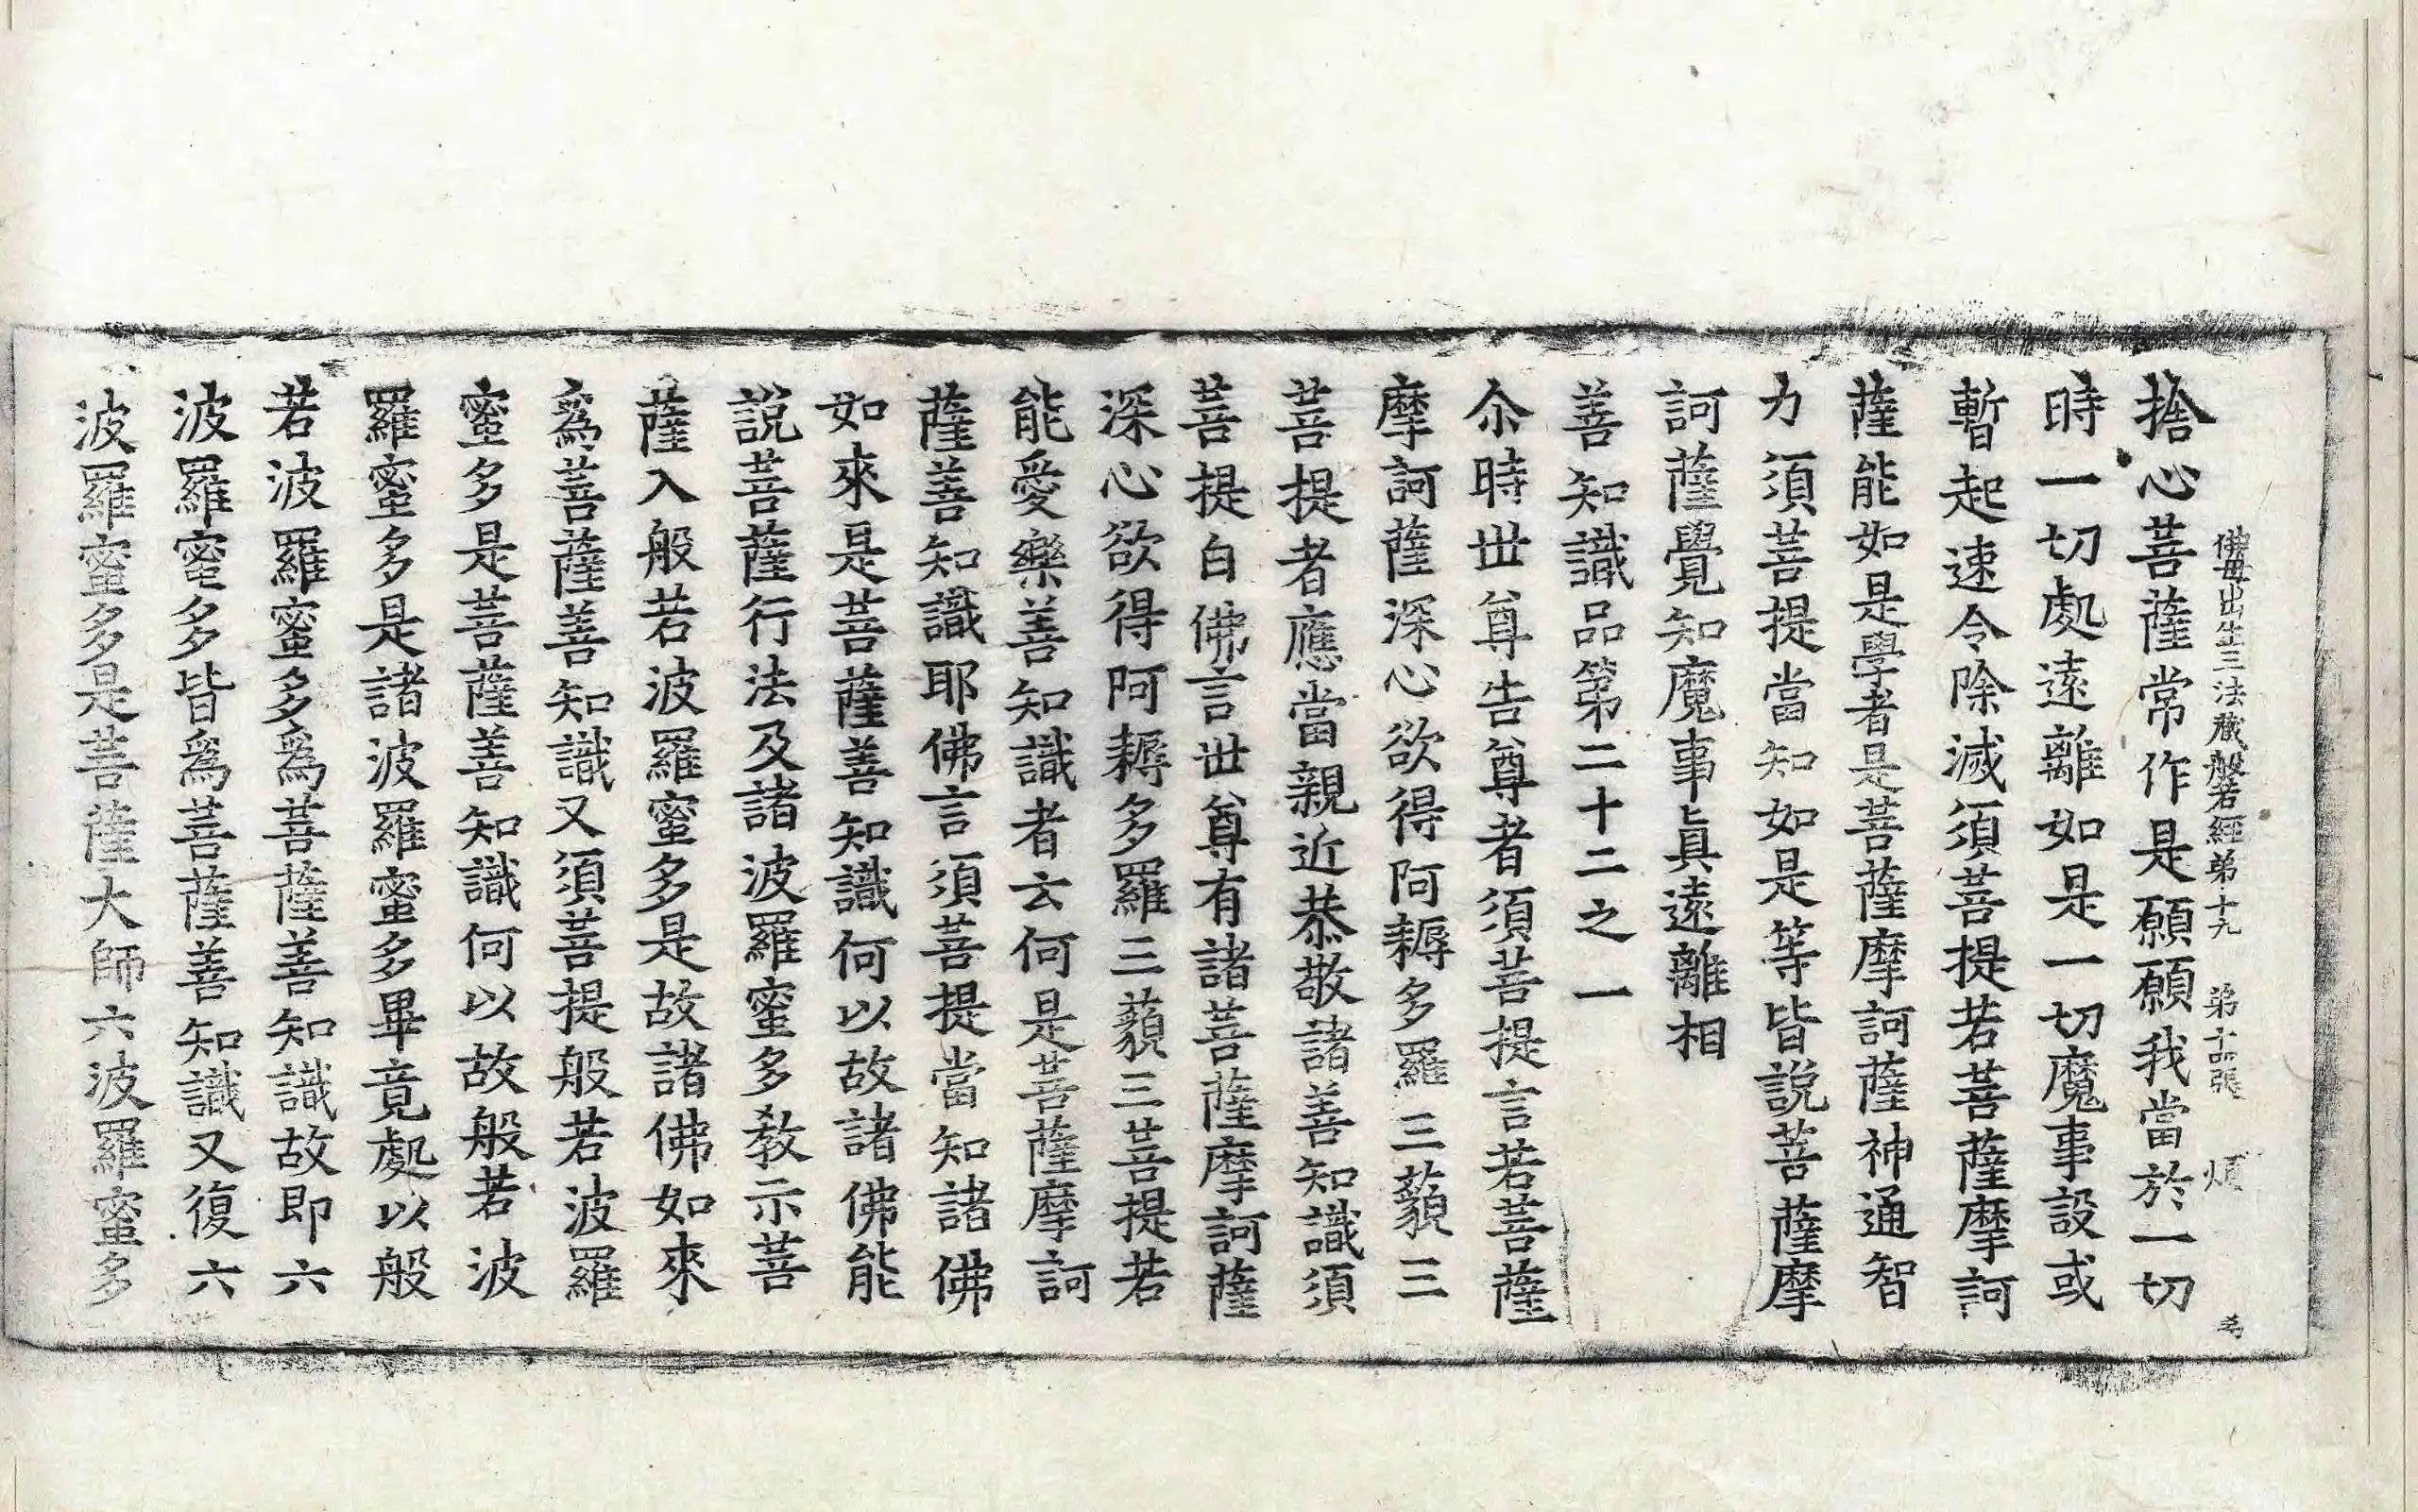 佛母出生三法藏般若經弟十九 弟十四張 煩
捨心菩薩常作是願願我當於一切
時一切處遠離如是一切魔事設或
暫起速令除滅須菩提若菩薩摩訶
薩能如是學者是菩薩摩訶薩神通智
力須菩提當知如是等皆說菩薩摩
訶薩覺知魔事眞遠離相
善知識品第二十二之一
尒時世尊告尊者須菩提言若菩薩
摩訶薩深心欲得阿耨多羅三藐三
菩提者應當親近恭敬諸善知識須
菩提白佛言世尊有諸菩薩摩訶薩
深心欲得阿耨多羅三藐三菩提若
能愛樂善知識者云何是菩薩摩訶
薩善知識耶佛言須菩提當知諸佛
如來是菩薩善知識何以故諸佛能
說菩薩行法及諸波羅蜜多教示菩
薩入般若波羅蜜多是故諸佛如來
爲菩薩善知識又須菩提般若波羅
蜜多是菩薩善知識何以故般若波
羅蜜多是諸波羅蜜多畢竟處以般
若波羅蜜多爲菩薩善知識故即六
波羅蜜多皆爲菩薩善知識又復六
波羅蜜多是菩薩大師六波羅蜜多